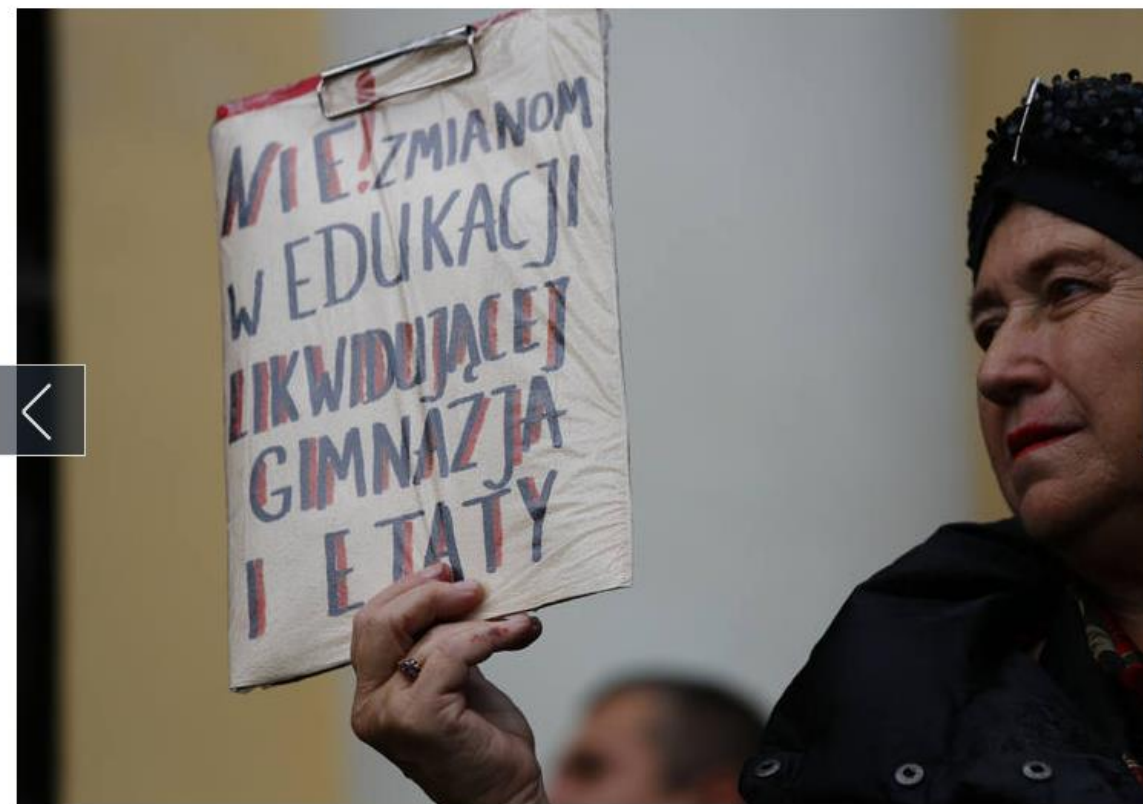 NIE! ZMIANOM
W EDUKACJI
LIKWIDUJĄCEJ
GIMNAZJA
I ETATY